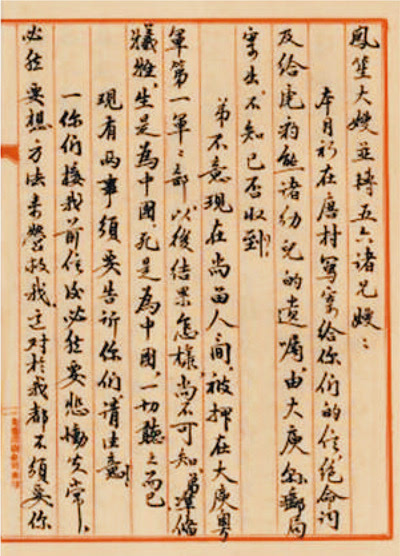 鳳笙大嫂並轉五六諸兄嫂：
本月初在唐村寫寄給你們的信、絕命詞
及給虎豹熊諸幼兒的遺囑，由大庾縣郵局
寄出，不知已否收到？
弟不意現在尚留人間，被押在大庾粤
軍第一軍々部，以後結果怎樣，尚不可知，弟準備
犧牲，生是為中國，死是為中國，一切聽之而已
現有兩事須要告訴你們，請注意！
一你們接我前信後必然要悲慟失常、
必然要想方法來營救我，这對於我都不須要你